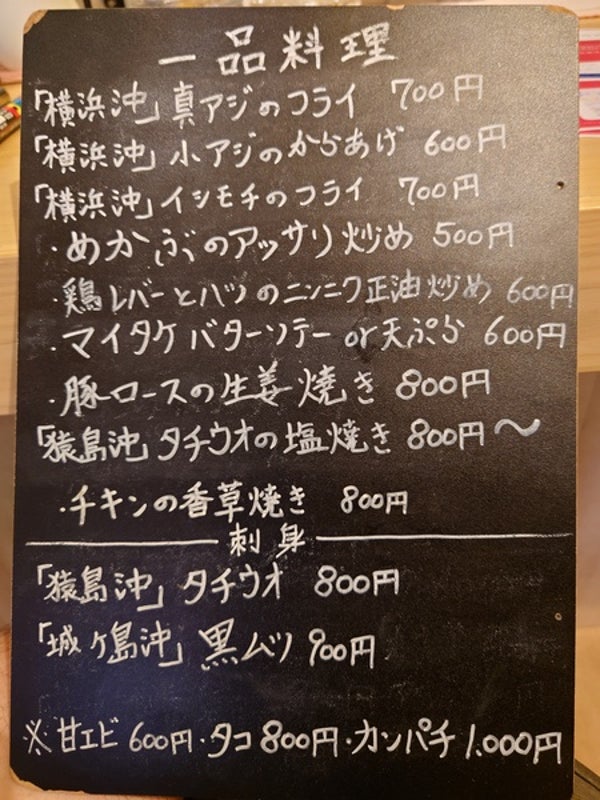 一品料理
「横浜沖」真アジのフライ 700円
「横浜沖」小アジのからあげ 600円
「横浜沖」イシモチのフライ 700円
・めかぶのアッサリ炒め 500円
・鶏レバーとハツのニンニク正油炒め 600円
・マイタケバターソテー or 天ぷら 600円
・豚ロースの生姜焼き 800円
「猿島沖」タチウオの塩焼き 800円〜
・チキンの香草焼き 800円
刺身
「猿島沖」タチウオ 800円
「城ヶ島沖」黒ムツ 900円
※甘エビ 600円・タコ 800円・カンパチ 1.000円